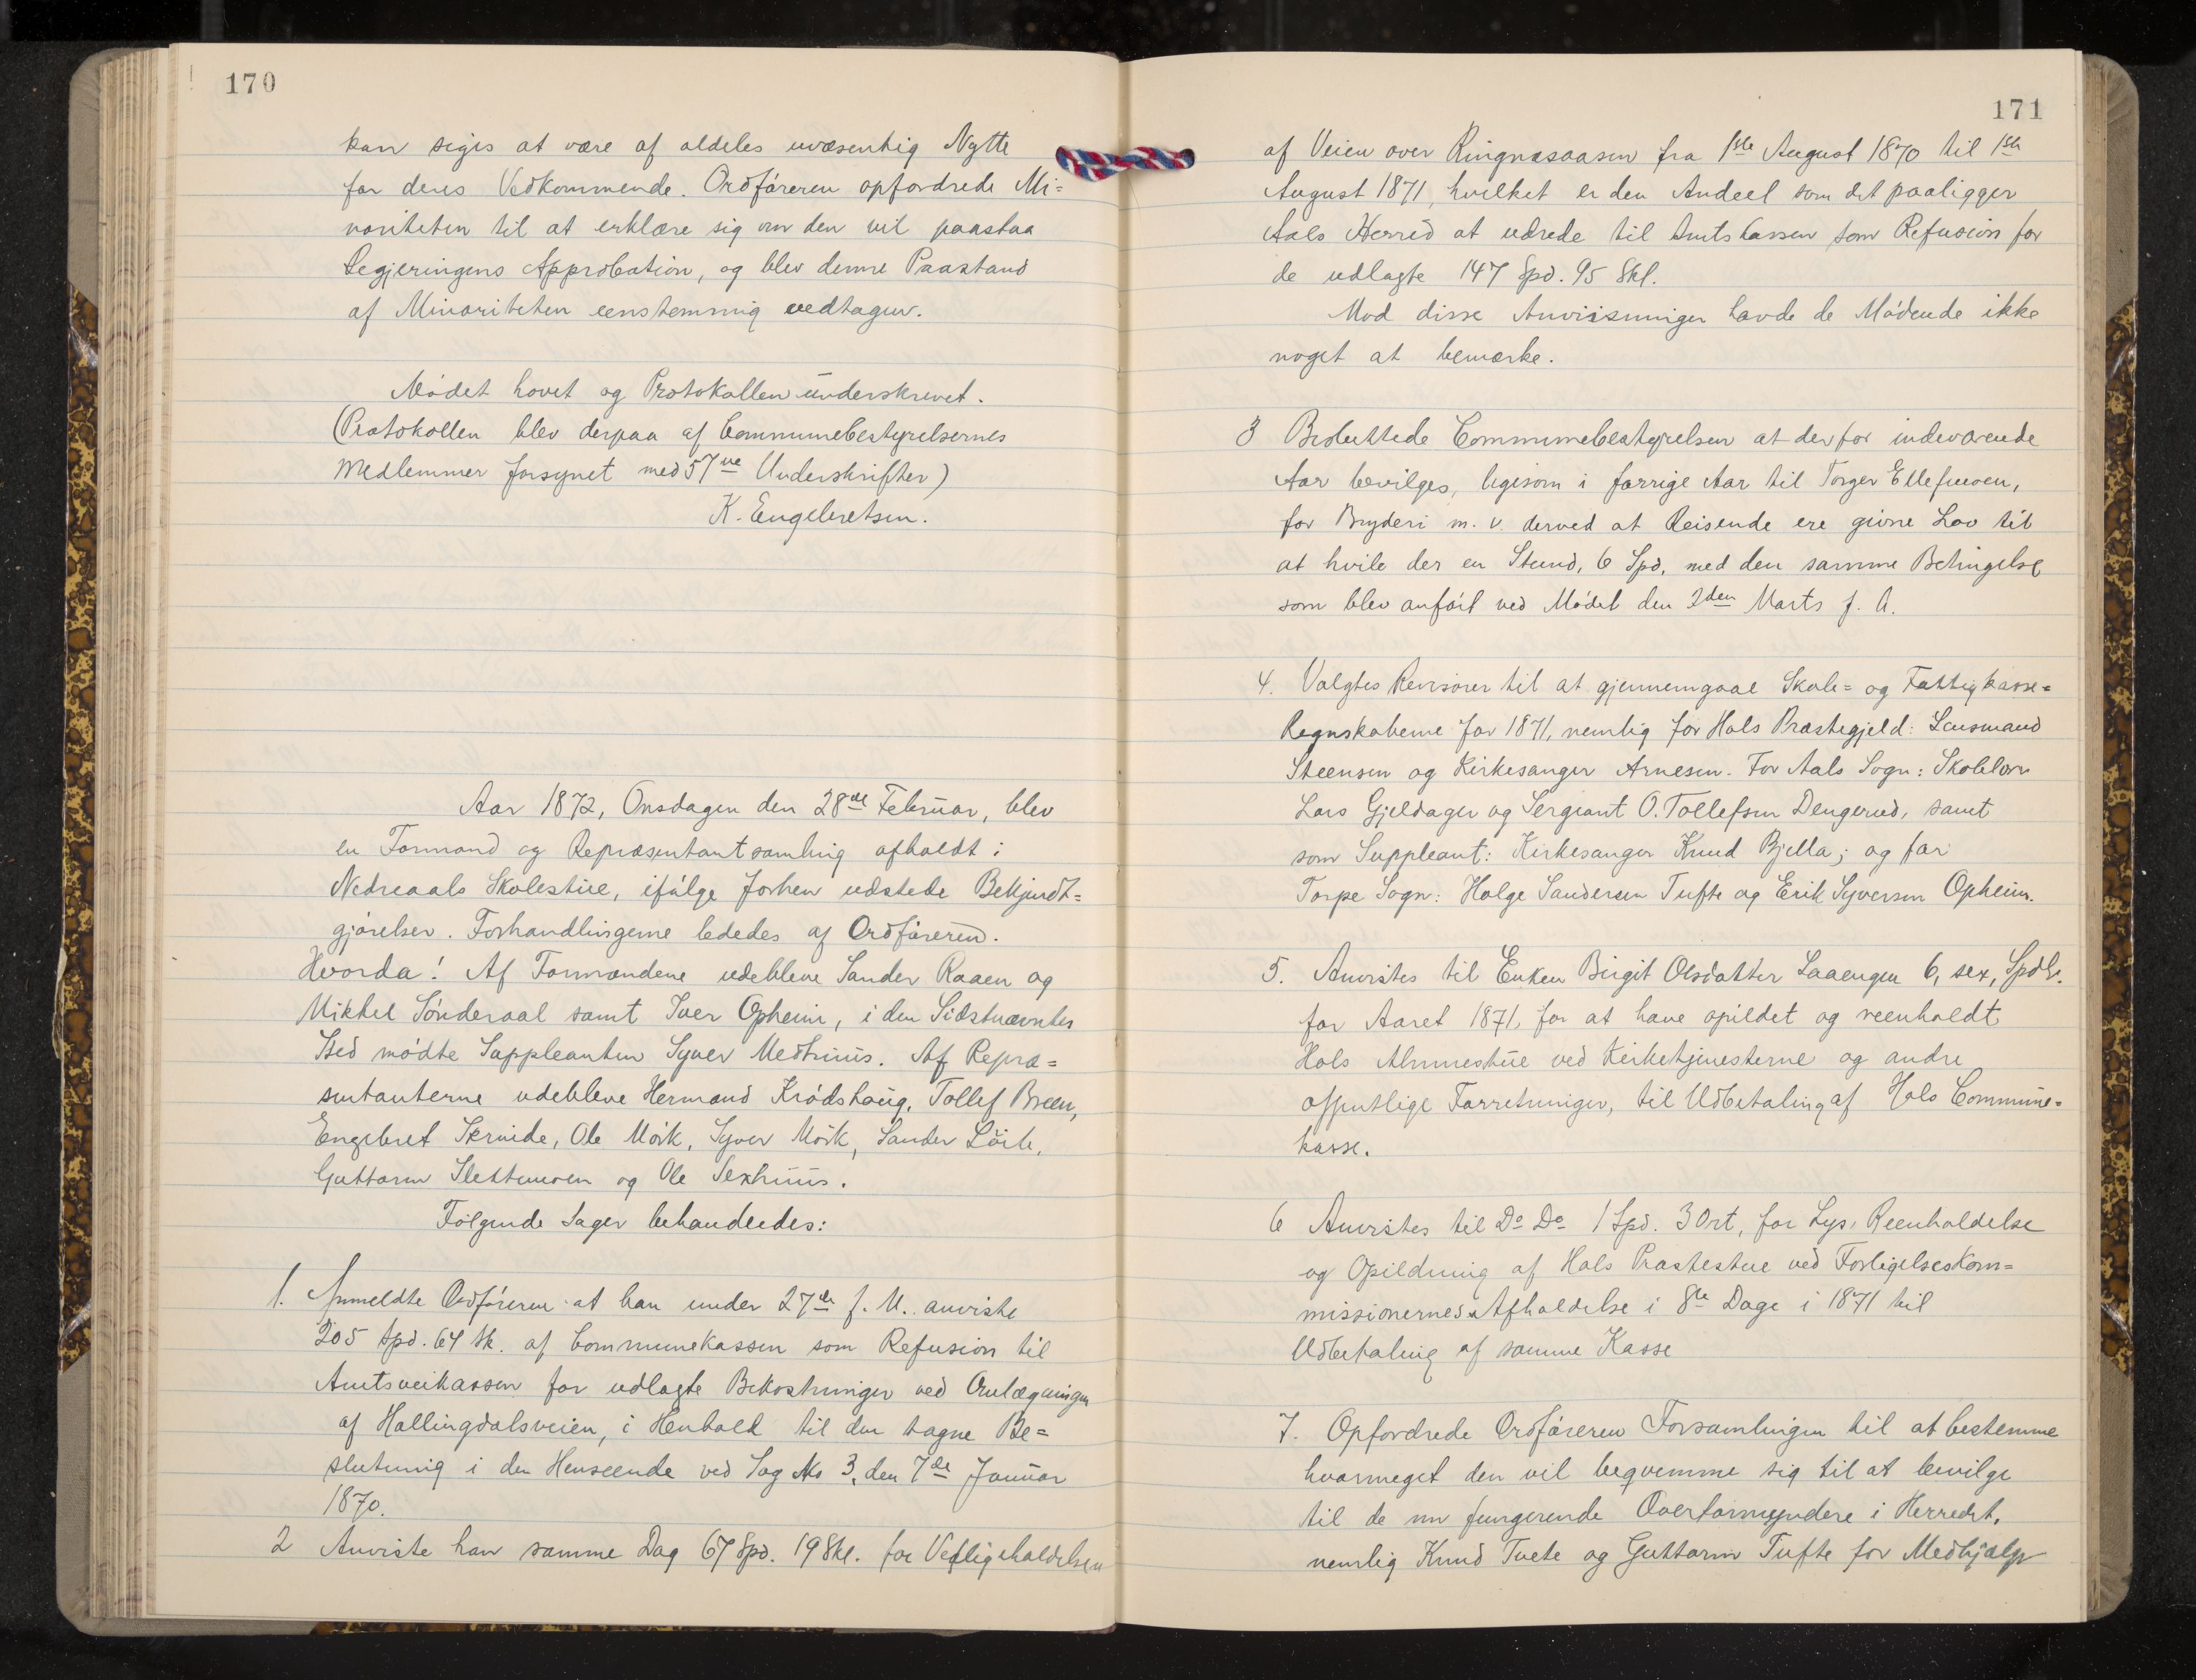 170
kan siges at være af aldeles uvæsentlig Nytte
for deres Vedkommende. Ordføreren opfordrede Mi=
noriteten til at erklære sig om den vil paastaa
Regjeringens Approbation, og blev denne Paastand
af Minoriteten eenstemmig vedtagen.
Mødet hævet og Protokollen underskrevet.
(Protokollen blev derpaa af Communebestyrelsernes
Medlemmer forsynet med 57ve Underskrifter)
K. Engebretsen.
Aar 1872, Onsdagen den 28de Februar, blev
en Formand og Repræsentantsamling afholdt i
Nedreaals Skolestue, ifølge forhen udstede Bekjendt=
gjørelser. Forhandlingerne lededes af Ordføreren.
Hvorda! Af Formændene udebleve Sander Raaen og
Mikkel Sønderaal samt Iver Opheim, i den Sidstnævntes
Sted mødte Suppleanten Syver Medhuus. Af Repræ=
sentanterne udebleve Hermand Krødshaug, Tollef Breen,
Engebret Skrinde, Ole Mørk, Syver Mørk, Sander Löile,
Guttorm Slettemoen og Ole Sexhuus.
Følgende Sager behandledes:
1. Anmeldte Ordføreren at han under 27de f. M. anviste
205 Spd. 64 Sk. af Communekassen som Refusion til
Amtsveikassen for udlagte Bekostninger ved Omlægningen
af Hallingdalsveien, i Henhold til den tagne Be=
slutning i den Henseende ved Sag No 3, den 7de Januar
1870.
2 Anviste han samme Dag 67 Spd. 19 Skl. for Vedligeholdelsen
171
af Veien over Ringnæsaasen fra 1ste August 1870 til 1ste
August 1871, hvilket er den Andeel som det paaligger
Aals Herred at udrede til Amtskassen som Refusion for
de udlagte 147 Spd. 95 Skl.
Mod disse Anviisninger havde de Mødende ikke
noget at bemærke.
3 Besluttede Communebestyrelsen at der for indeværende
Aar bevilges, ligesom i forrige Aar til Torger Ellefmoen,
for Bryderi m. v. derved at Reisende ere givne Lov til
at hvile der en Stund, 6 Spd, med den samme Betingelse
som blev anført ved Mødet den 2den Marts f. A.
4. Valgtes Revisorer til at gjennemgaae Skole= og Fattigkasse=
Regnskaberne for 1871, nemlig for Hols Præstegjeld: Lensmand
Steensen og Kirkesanger Arnesen. For Aals Sogn: Skolelærer
Lars Gjeldager og Sergiant O. Tollefsen Dengerud, samt
som Suppleant: Kirkesanger Knud Bjella; og for
Torpe Sogn: Holge Sandersen Tufte og Erik Syversen Opheim.
5. Anvistes til Enken Birgit Olsdatter Laaengen 6, sex, Spdlr.
for Aaret 1871, for at have opildet og reenholdt
Hols Almuestue ved Kirketjenesterne og andre
offentlige Forretninger, til Udbetaling af Hols Commune=
kasse.
6 Anvistes til Do Do 1 Spd. 3 Ort, for Lys, Reenholdelse
og Opildning af Hols Præstestue ved Forligelseskom=
missionernes Afholdelse i 8te Dage i 1871 til
Udbetaling af samme Kasse
7. Opfordrede Ordføreren Forsamlingen til at bestemme
hvormeget den vil beqvemme sig til at bevilge
til de nu fungerende Overformyndere i Herredet,
nemlig Knud Tvete og Guttorm Tufte for Medhjælp